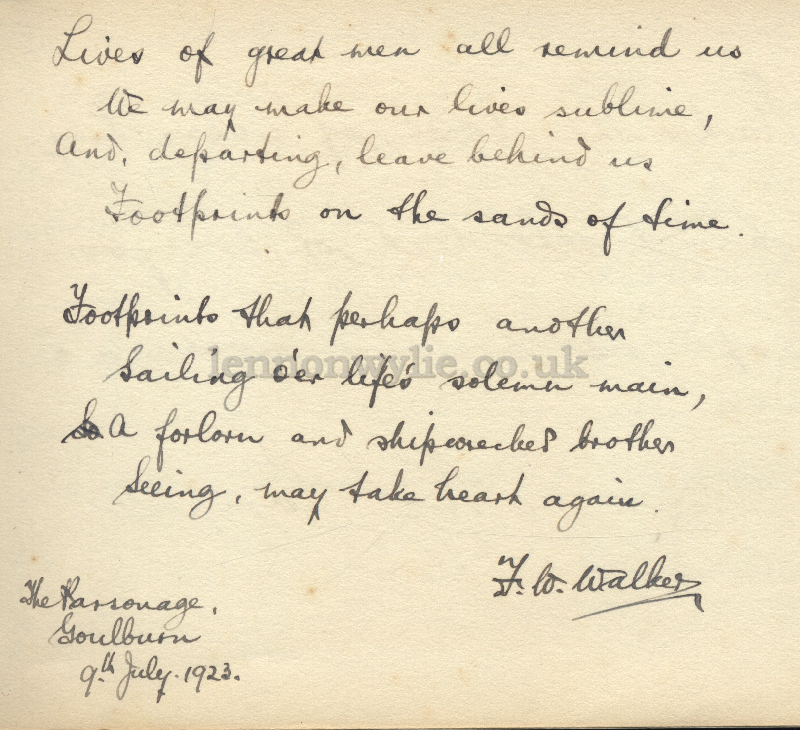 Lives of great men all remind us
We may make our lives sublime,
And, departing, leave behind us
Footprints on the sands of time.
Footprints that perhaps another
Sailing o'er life's solemn main,
A forlorn and shipwrecked brother
Seeing, may take heart again.
lennonwylie.co.uk
F. W. Walker
The Parsonage,
Goulburn
9th July. 1923.